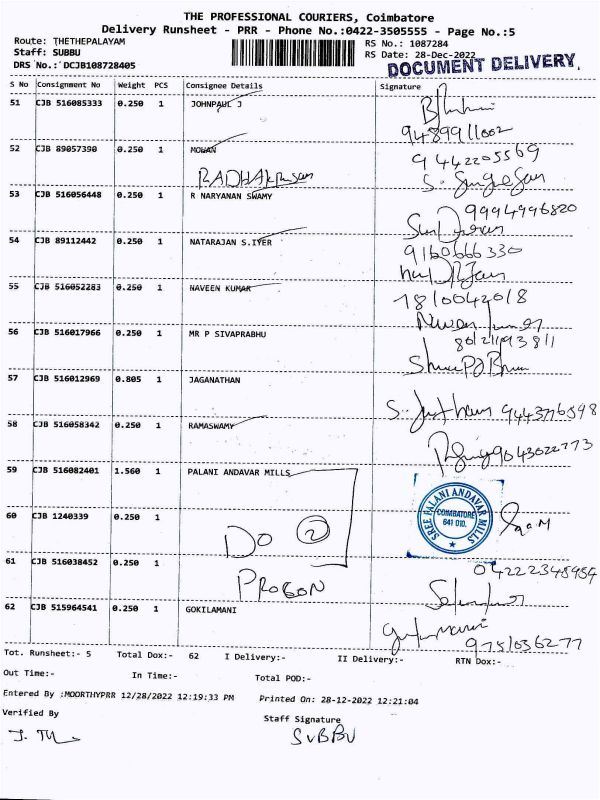 THE PROFESSIONAL COURIERS, Coimbatore
Delivery Runsheet - PRR - Phone No.:0422-3505555 - Page No.:5
Route: THETHEPALAYAM RS No.: 1087284
Staff: SUBBU RS Date: 28-Dec-2022
DRS No.: DCJB108728405 DOCUMENT DELIVERY.
S No Consignment No Weight PCS Consignee Details Signature
51 CJB 516085333 0.250 1 JOHNPAUL J
9489911002
52 CJB 89057390 0.250 1 MOHAN 9442205569
RADHAKRISAN
53 CJB 516056448 0.250 1 R NARYANAN SWAMY 9994996820
54 CJB 89112442 0.250 1 NATARAJAN S.IYER 9160666330
55 CJB 516052283 0.250 1 NAVEEN KUMAR
56 CJB 516017966 0.250 1 MR P SIVAPRABHU
57 CJB 516012969 0.805 1 JAGANATHAN
58 CJB 516058342 0.250 1 RAMASWAMY
9043022773
59 CJB 516082401 1.560 1 PALANI ANDAVAR MILLS
SREE PALANI ANDAVAR MILLS
COIMBATORE
641 010.
60 CJB 1240339 0.250 1
DO 2
61 CJB 516038452 0.250 1
04222345954
PROGON
62 CJB 515964541 0.250 1 GOKILAMANI
9751036277
Tot. Runsheet:- 5 Total Dox:- 62 I Delivery:- II Delivery:- RTN Dox:-
Out Time:- In Time:- Total POD:-
Entered By :MOORTHYPRR 12/28/2022 12:19:33 PM Printed On: 28-12-2022 12:21:04
Verified By Staff Signature
SUBBU